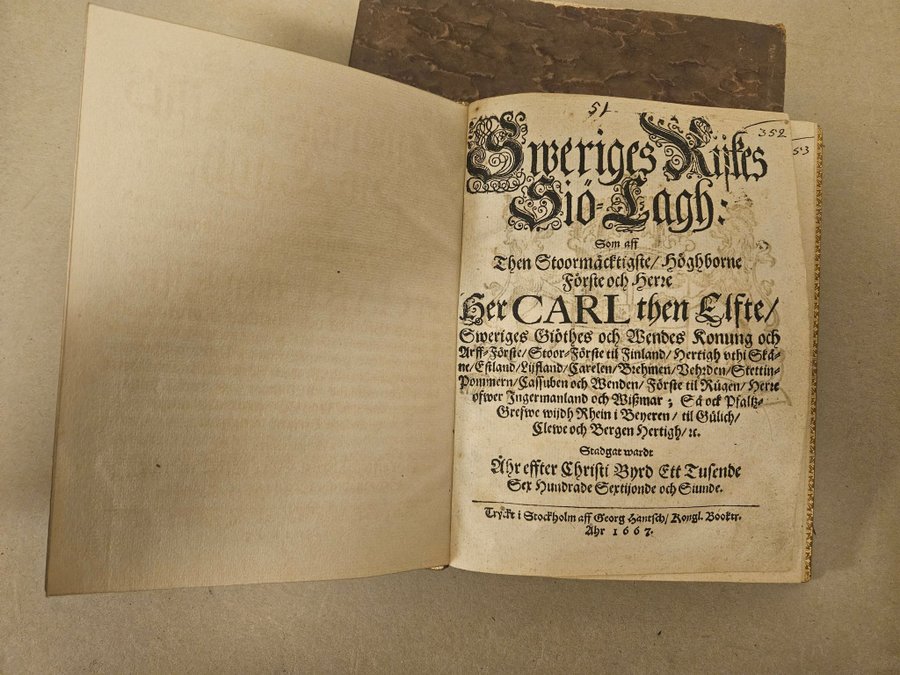 51
352
53
Sweriges Rijkes
Siö-Lagh:
Som aff
Then Stoormäcktigste/ Höghborne
Förste och Herre
Her CARL then Elfte/
Sweriges Giöthes och Wendes Konung och
Arff-Förste/ Stoor-Förste til Finland/ Hertigh vthi Skå-
ne/ Estland/ Lijfland/ Carelen/ Brehmen/ Vehrden/ Stettin-
Pommern/ Cassuben och Wenden/ Förste til Rügen/ Herre
öfwer Ingermanland och Wißmar; Så ock Pfaltz-
Grefwe wijdh Rhein i Beyeren/ til Gülich/
Clewe och Bergen Hertigh/ ꝛc.
Stadgat wardt
Åhr effter Christi Byrd Ett Tusende
Sex Hundrade Sextijonde och Siunde.
Tryckt i Stockholm aff Georg Hantsch/ Kongl. Booktr.
Åhr 1667.